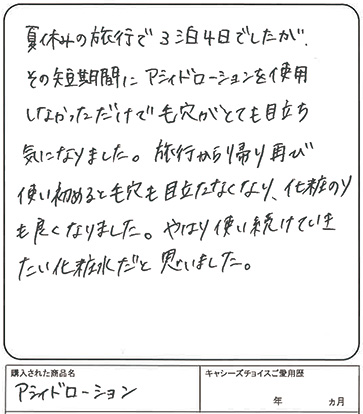 夏休みの旅行で3泊4日でしたが、
その短期間にアシィドローションを使用
しなかっただけで毛穴がとても目立ち
気になりました。旅行から帰り再び
使い初めると毛穴も目立たなくなり、化粧のり
も良くなりました。やはり使い続けていき
たい化粧水だと思いました。
購入された商品名
アシィドローション
キャシーズチョイスご愛用歴
年 ヵ月